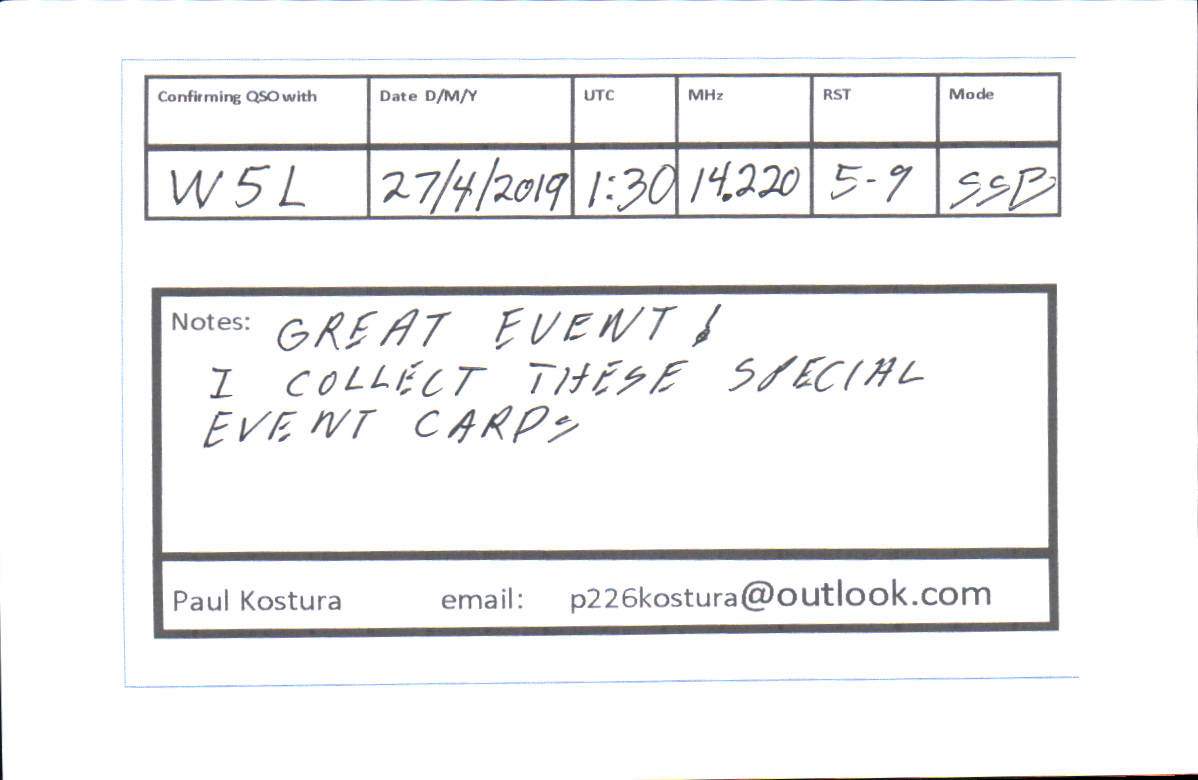 Confirming QSO with Date D/M/Y UTC MHz RST Mode
W5L 27/4/2019 1:30 14.220 5-9 SSB
Notes: GREAT EVENT!
I COLLECT THESE SPECIAL
EVENT CARDS
Paul Kostura email: p226kostura@outlook.com